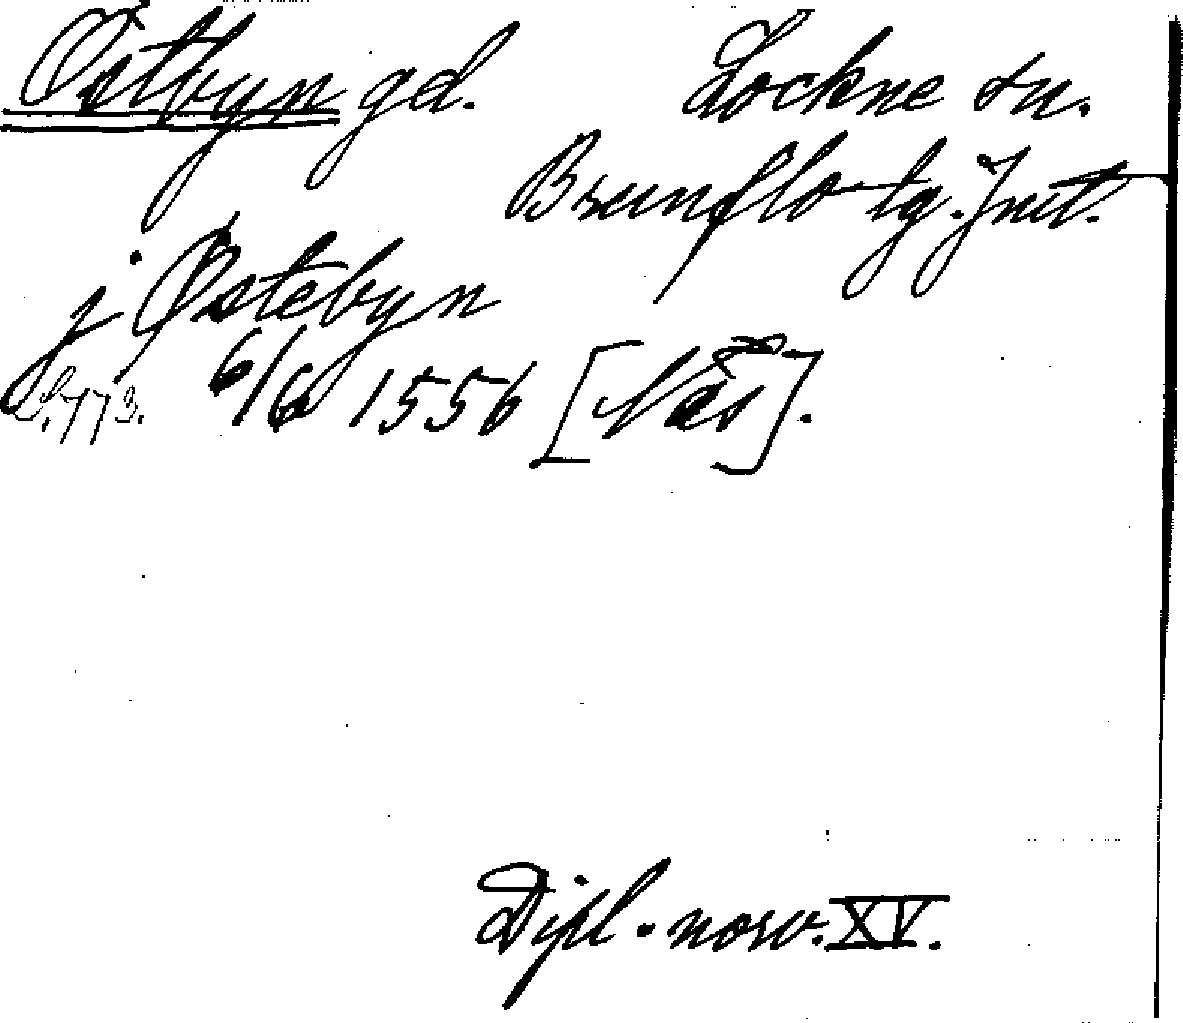 Östbyn gd. Lockne sn.
Brunflo tg. Jmt.
j Østebyn
S. 773. 6/6 1556 [Näs].
Dipl. norv. XV.